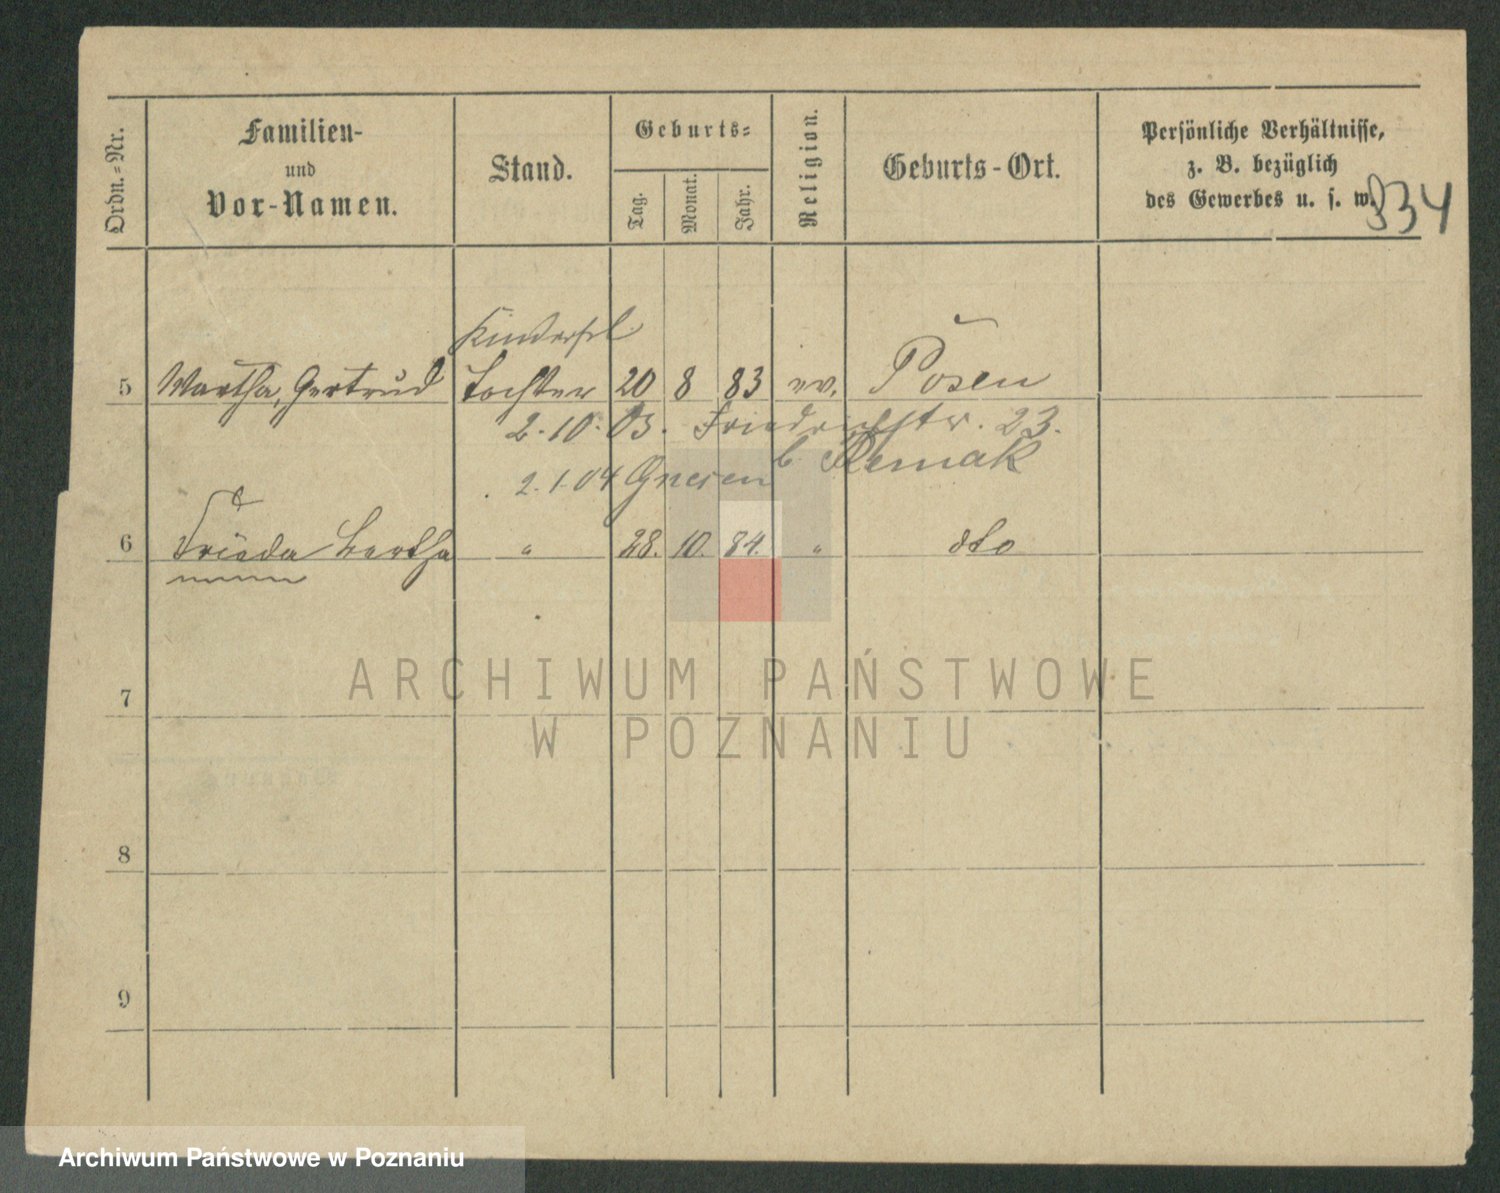 Ordn.-Nr.
Familien-
und
Vor-Namen.
Stand.
Geburts-
Tag.
Monat.
Jahr.
Religion.
Geburts-Ort.
Persönliche Verhältnisse,
z. B. bezüglich
des Gewerbes u. s. w.
334
Kinderfrl.
5 Martha, Gertrud Tochter 20 8 83 ev. Posen
2.10.03. Friedrichstr. 23.
b. Remak
2.1.04 Gnesen
6 Frieda Bertha " 28. 10. 84. " dto
7
8
9
ARCHIWUM PAŃSTWOWE
W POZNANIU
Archiwum Państwowe w Poznaniu